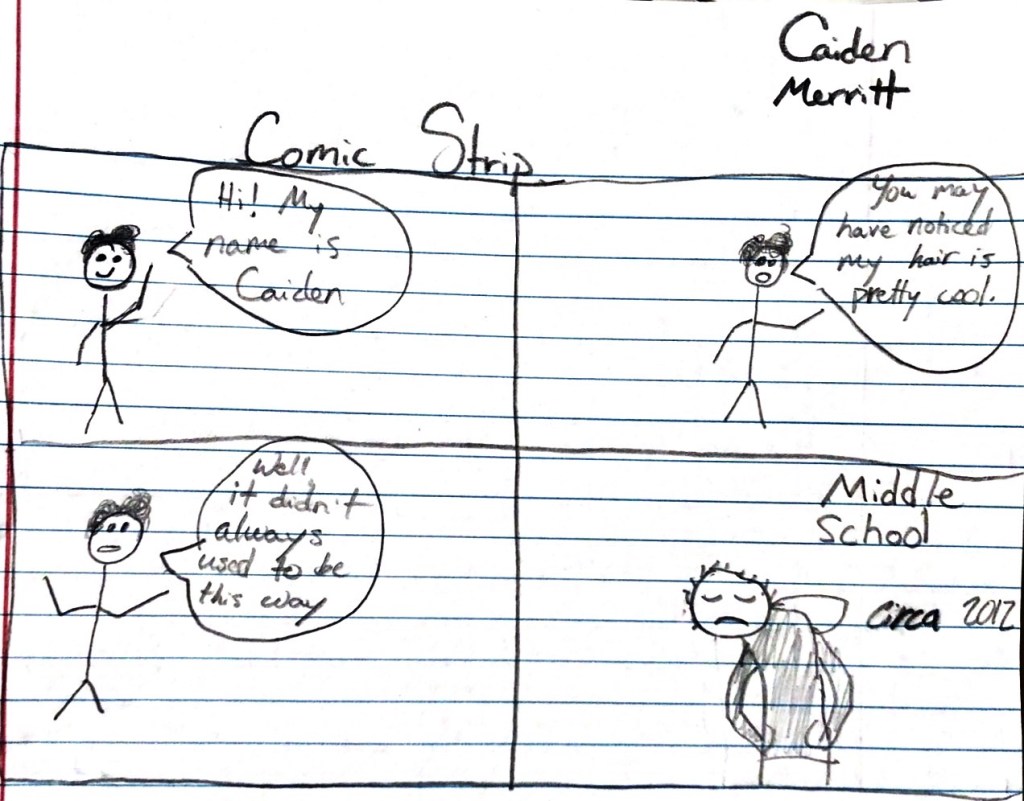 Caiden
Merritt
Comic Strip
Hi! My
name is
Caiden
You may
have noticed
my hair is
pretty cool.
Well,
it didn't
always
used to be
this way
Middle
School
circa 2012